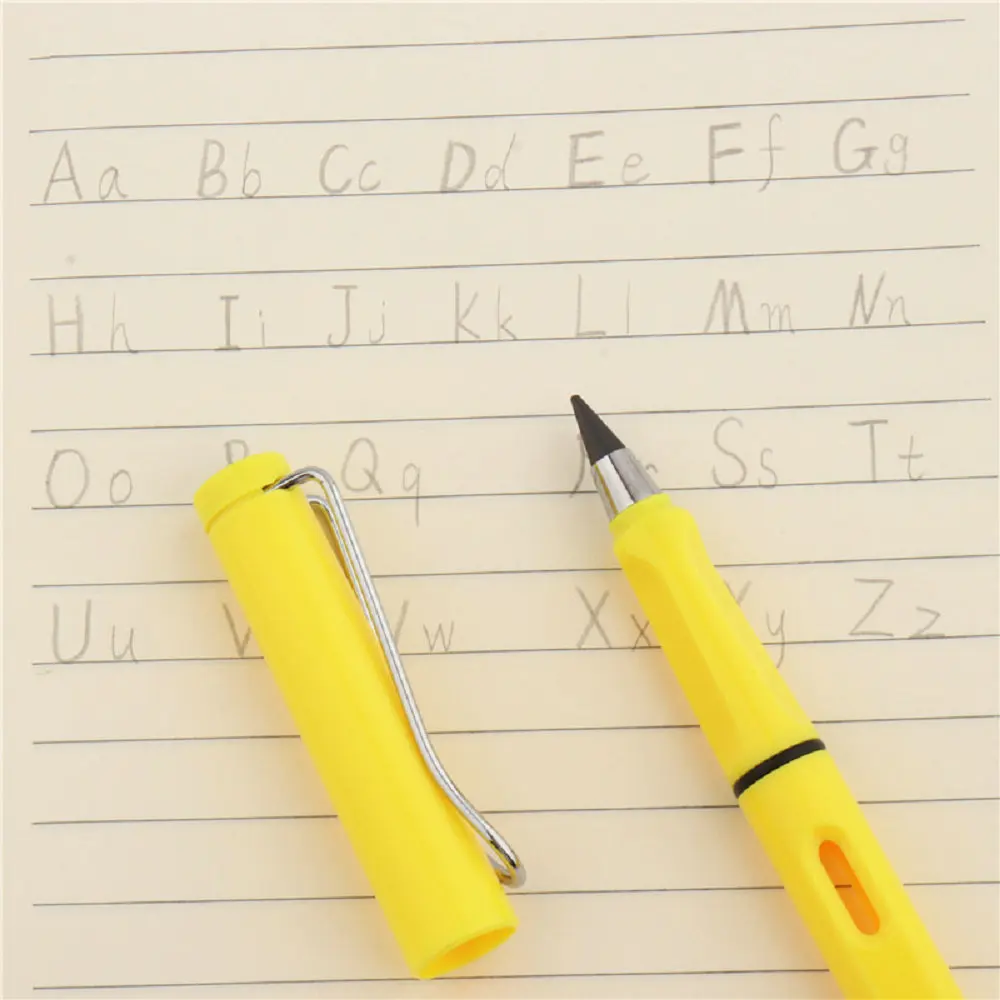 Aa Bb Cc Dd Ee Ff Gg
Hh Ii Jj Kk Ll Mm Nn
Oo Qq Ss Tt
Uu Ww Xx Yy Zz